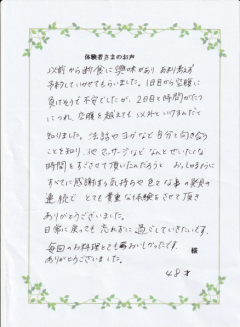 体験者さまのお声
以前から断食に興味があり あまり考えず
予約していかせてもらいました。1日目から空腹に
負けそうで不安でしたが、2日目と時間がたつ
につれ、空腹を越えても 以外といけるんだと
知りました。法話やヨガなど自分と向き合う
ことを知り、他マッサージなどなんとぜいたくな
時間をすごさせて頂いたんだろうと
すべてに感謝する気持ちや色々な事の発見の
連続で とても貴重な体験をさせて頂き
ありがとうございました。
日常に戻っても 忘れずに過ごしていきたいです。
毎回のお料理とてもおいしかったです。
様
ありがとうございました。
48才